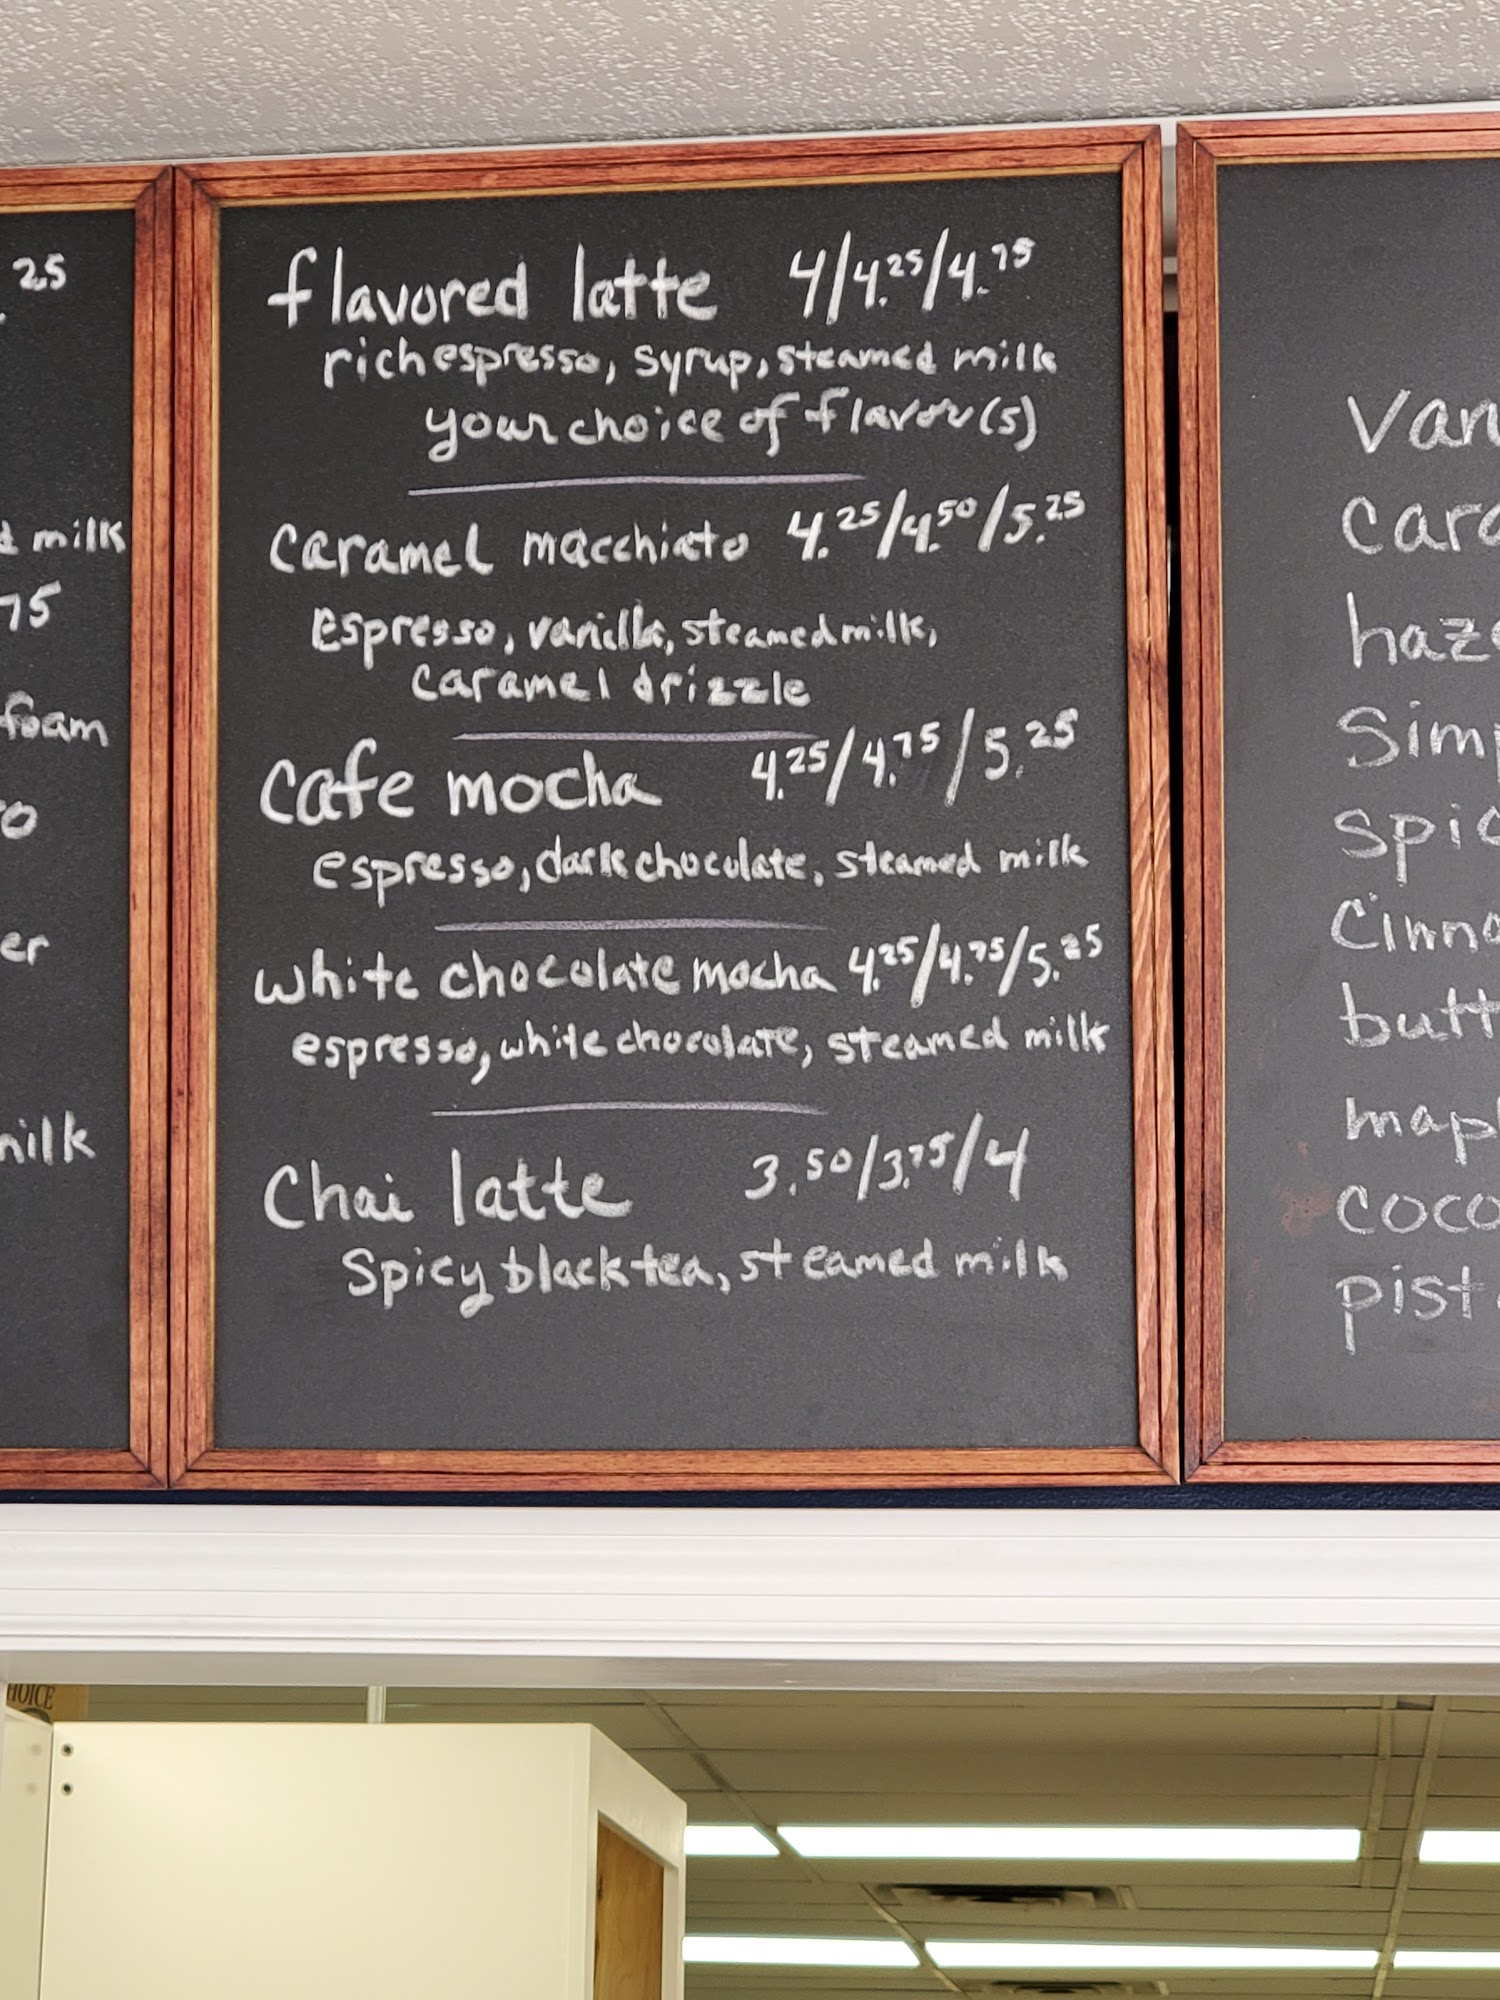 .25
milk
75
foam
er
milk
flavored latte 4/4.25/4.75
rich espresso, syrup, steamed milk
your choice of flavor(s)
caramel macchiato 4.25/4.50/5.25
espresso, vanilla, steamed milk,
caramel drizzle
cafe mocha 4.25/4.75/5.25
espresso, dark chocolate, steamed milk
white chocolate mocha 4.25/4.75/5.25
espresso, white chocolate, steamed milk
Chai latte 3.50/3.75/4
Spicy black tea, steamed milk
van
cara
haze
Simp
spic
Cinna
butt
mapl
coco
pist
HOICE